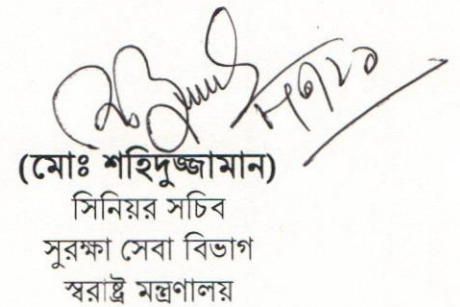 (মোঃ শহিদুজ্জামান)
সিনিয়র সচিব
সুরক্ষা সেবা বিভাগ
স্বরাষ্ট্র মন্ত্রণালয়